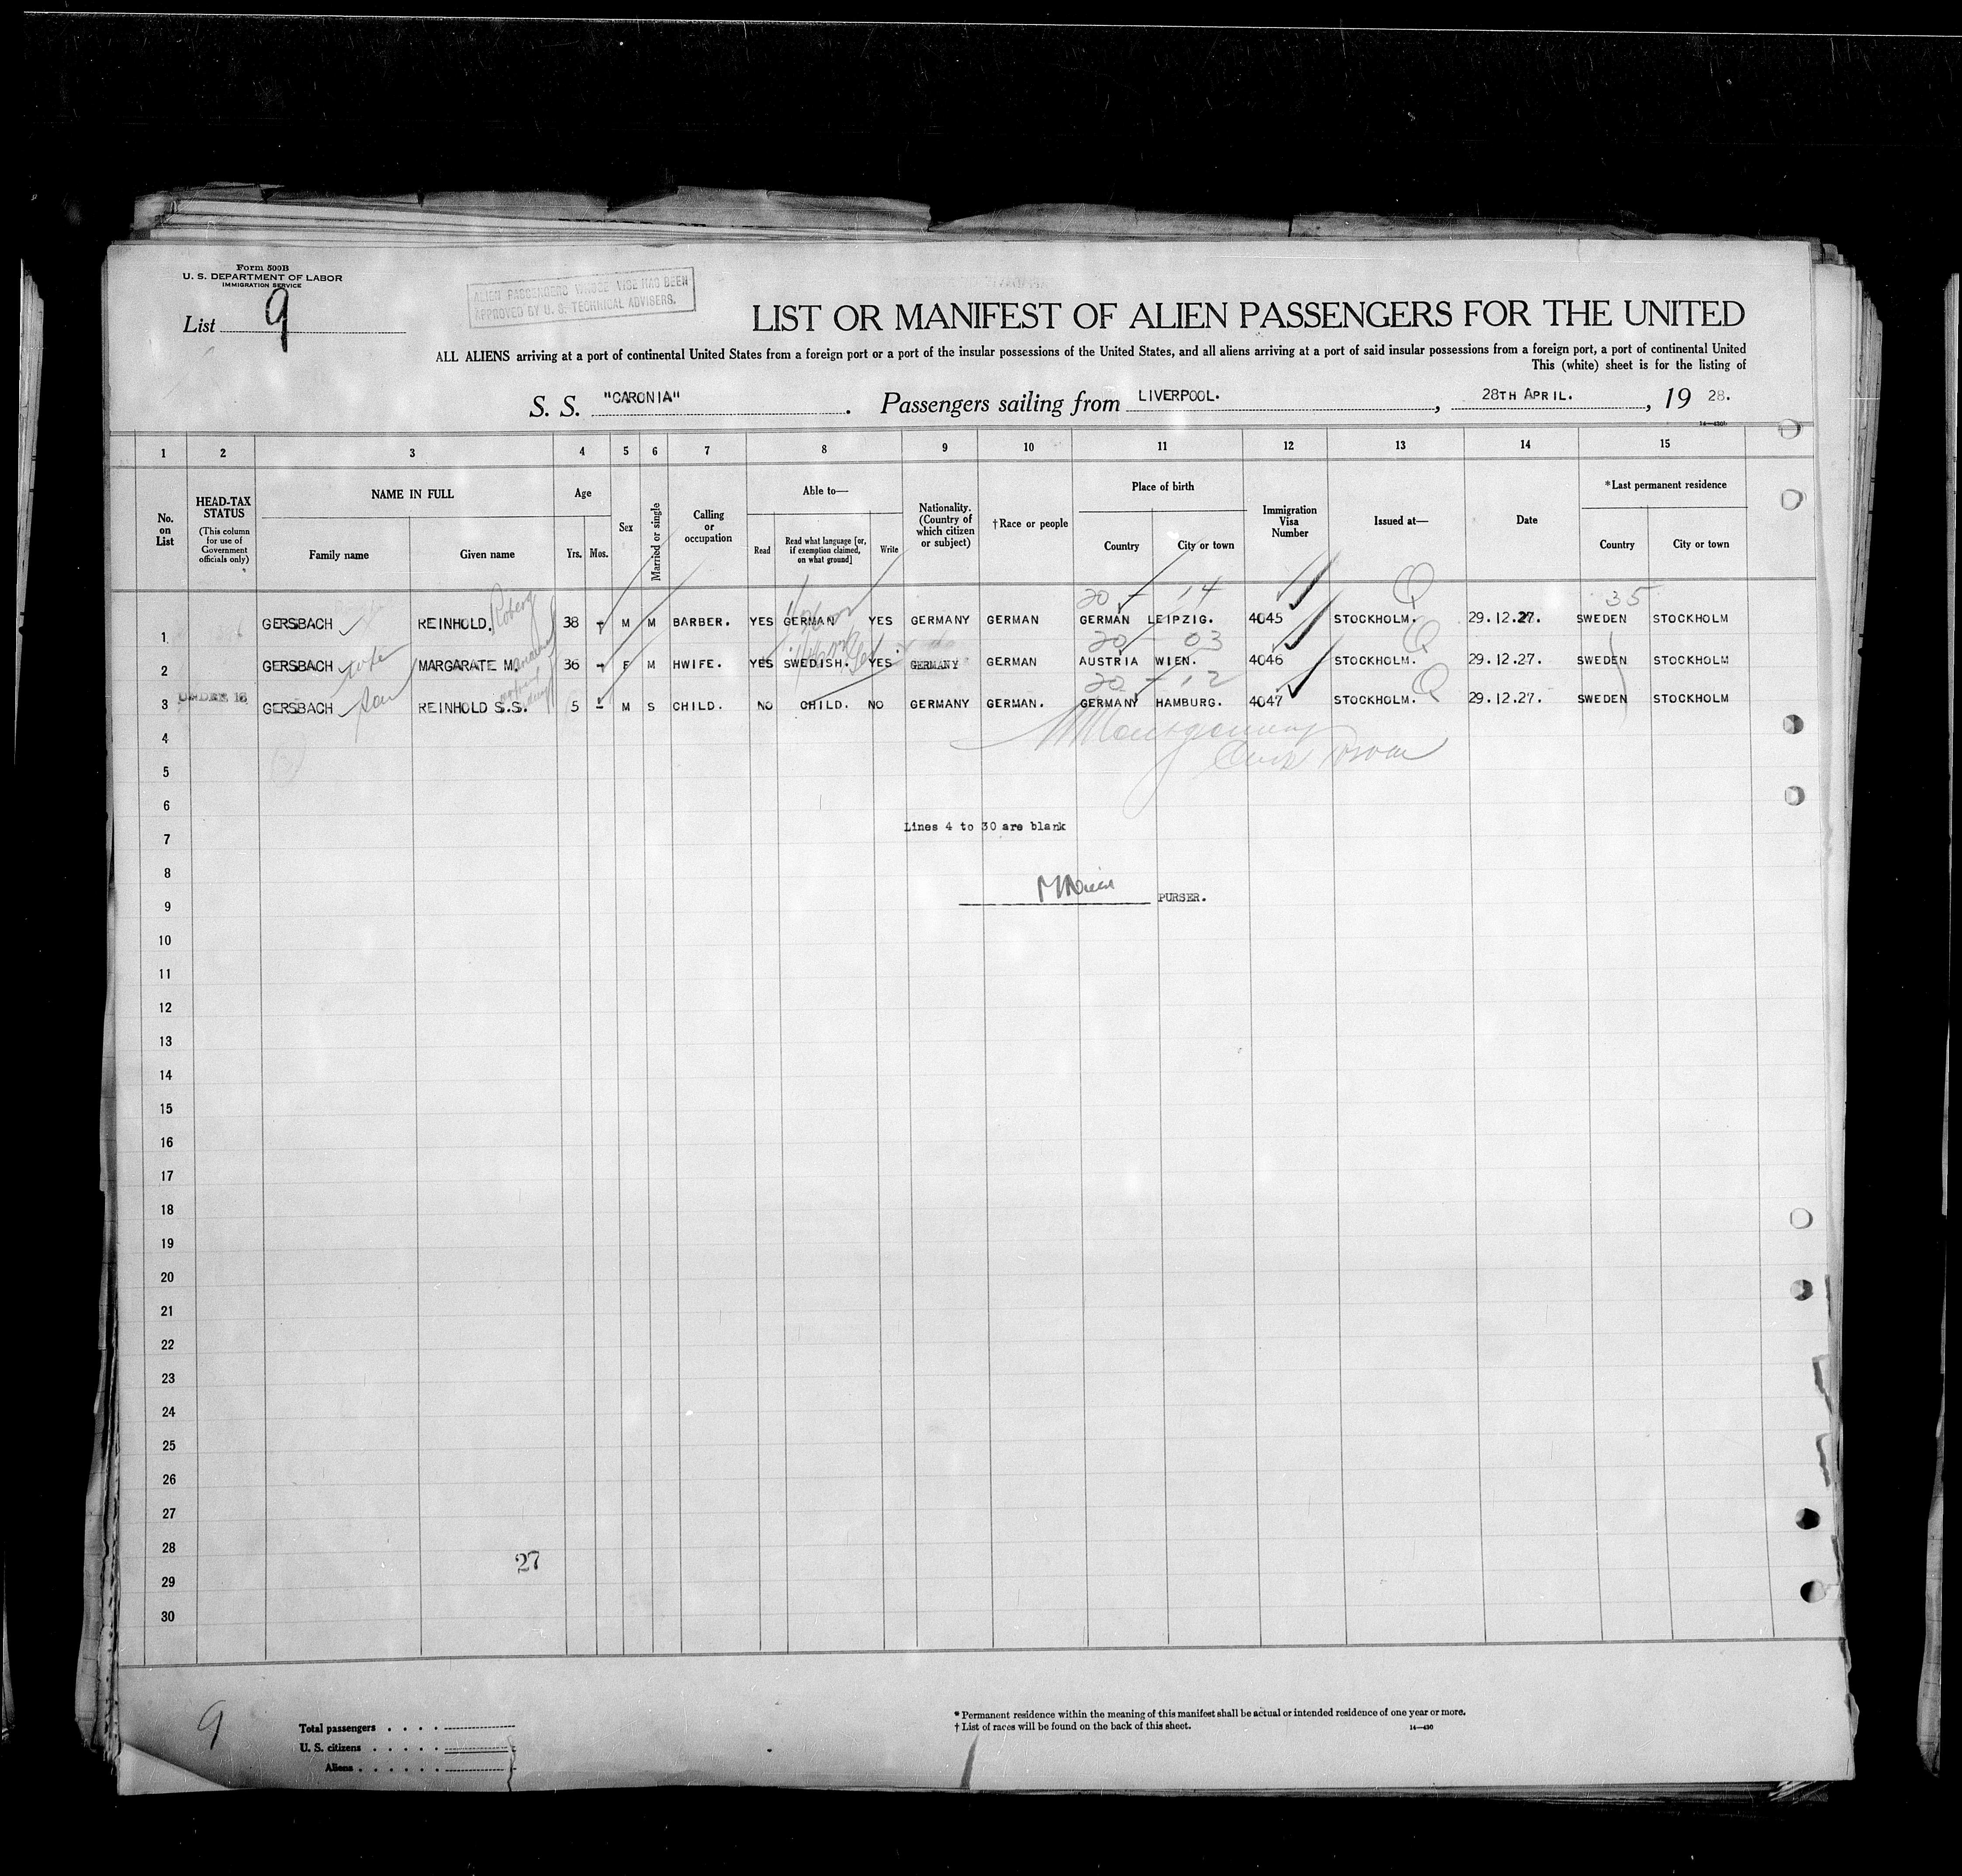 Form 500B
U. S. DEPARTMENT OF LABOR
IMMIGRATION SERVICE
List 9
ALIEN PASSENGERS WHOSE VISE HAS BEEN
APPROVED BY U. S. TECHNICAL ADVISERS.
LIST OR MANIFEST OF ALIEN PASSENGERS FOR THE UNITED
ALL ALIENS arriving at a port of continental United States from a foreign port or a port of the insular possessions of the United States, and all aliens arriving at a port of said insular possessions from a foreign port, a port of continental United
This (white) sheet is for the listing of
S. S. "CARONIA" . Passengers sailing from LIVERPOOL. , 28TH APRIL. , 19 28.
14—430b
1 2 3 4 5 6 7 8 9 10 11 12 13 14 15
No. on List
HEAD-TAX STATUS (This column for use of Government officials only)
NAME IN FULL
Family name Given name
Age
Yrs. Mos.
Sex
Married or single
Calling or occupation
Able to—
Read Read what language [or, if exemption claimed, on what ground] Write
Nationality. (Country of which citizen or subject)
†Race or people
Place of birth
Country City or town
Immigration Visa Number
Issued at—
Date
*Last permanent residence
Country City or town
20 - 14 Q 35
1 GERSBACH REINHOLD. 38 - M M BARBER. YES GERMAN YES GERMANY GERMAN GERMAN LEIPZIG. 4045 STOCKHOLM. 29.12.27. SWEDEN STOCKHOLM
20 - 03 Q
2 GERSBACH wife MARGARATE M. 36 - F M HWIFE. YES SWEDISH. YES GERMANY GERMAN AUSTRIA WIEN. 4046 STOCKHOLM. 29.12.27. SWEDEN STOCKHOLM
20 - 12 Q
3 UNDER 16 GERSBACH son REINHOLD S.S. 5 - M S CHILD. NO CHILD. NO GERMANY GERMAN. GERMANY HAMBURG. 4047 STOCKHOLM. 29.12.27. SWEDEN STOCKHOLM
4
5
6
7 Lines 4 to 30 are blank
8
9 PURSER.
10
11
12
13
14
15
16
17
18
19
20
21
22
23
24
25
26
27
28 27
29
30
9
Total passengers
U. S. citizens
Aliens
* Permanent residence within the meaning of this manifest shall be actual or intended residence of one year or more.
† List of races will be found on the back of this sheet. 14—430